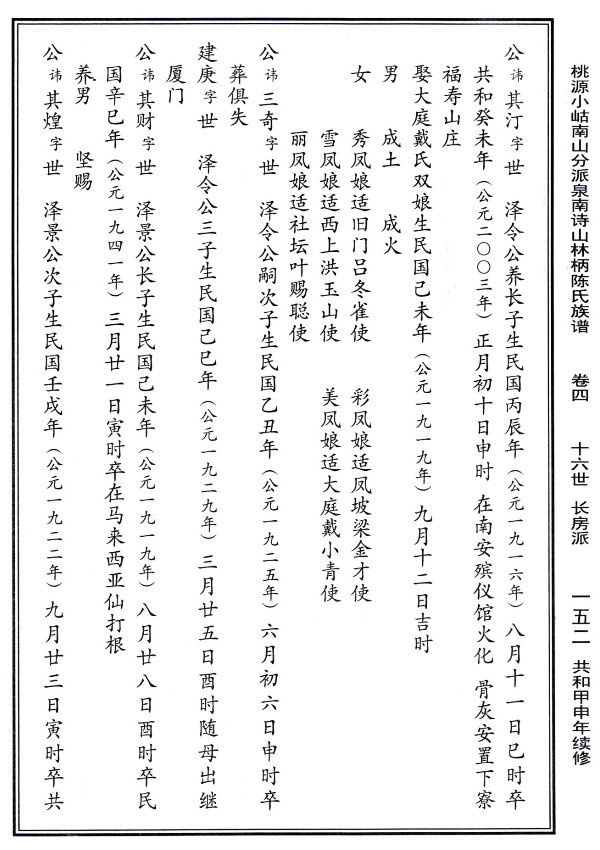 桃源小岵南山分派泉南诗山林柄陈氏族谱 卷四 十六世 长房派 一五二 共和甲申年续修
公讳其汀字世 泽令公养长子生民国丙辰年（公元一九一六年）八月十一日巳时卒
共和癸未年（公元二〇〇三年）正月初十日申时 在南安殡仪馆火化 骨灰安置下寮
福寿山庄
娶大庭戴氏双娘生民国己未年（公元一九一九年）九月十二日吉时
男 成土 成火
女 秀凤娘适旧门吕冬雀使 彩凤娘适凤坡梁金才使
雪凤娘适西上洪玉山使 美凤娘适大庭戴小青使
丽凤娘适社坛叶赐聪使
公讳三奇字世 泽令公嗣次子生民国乙丑年（公元一九二五年）六月初六日申时卒
葬俱失
建庚字世 泽令公三子生民国己巳年（公元一九二九年）三月廿五日酉时随母出继
厦门
公讳其财字世 泽景公长子生民国己未年（公元一九一九年）八月廿八日酉时卒民
国辛巳年（公元一九四一年）三月廿一日寅时卒在马来西亚仙打根
养男 坚赐
公讳其煌字世 泽景公次子生民国壬戌年（公元一九二二年）九月廿三日寅时卒共